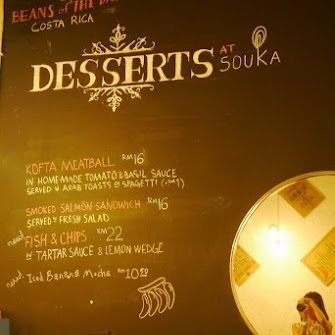 BEANS of THE
COSTA RICA
DESSERTS AT SOUKA
KOFTA MEATBALL RM16
IN HOMEMADE TOMATO & BASIL SAUCE
SERVED W ARAB TOASTS OR SPAGETTI (+RM1)
SMOKED SALMON SANDWICH RM16
SERVED W FRESH SALAD
new! FISH & CHIPS RM22
W TARTAR SAUCE & LEMON WEDGE
new! Iced Banana Mocha RM10.50